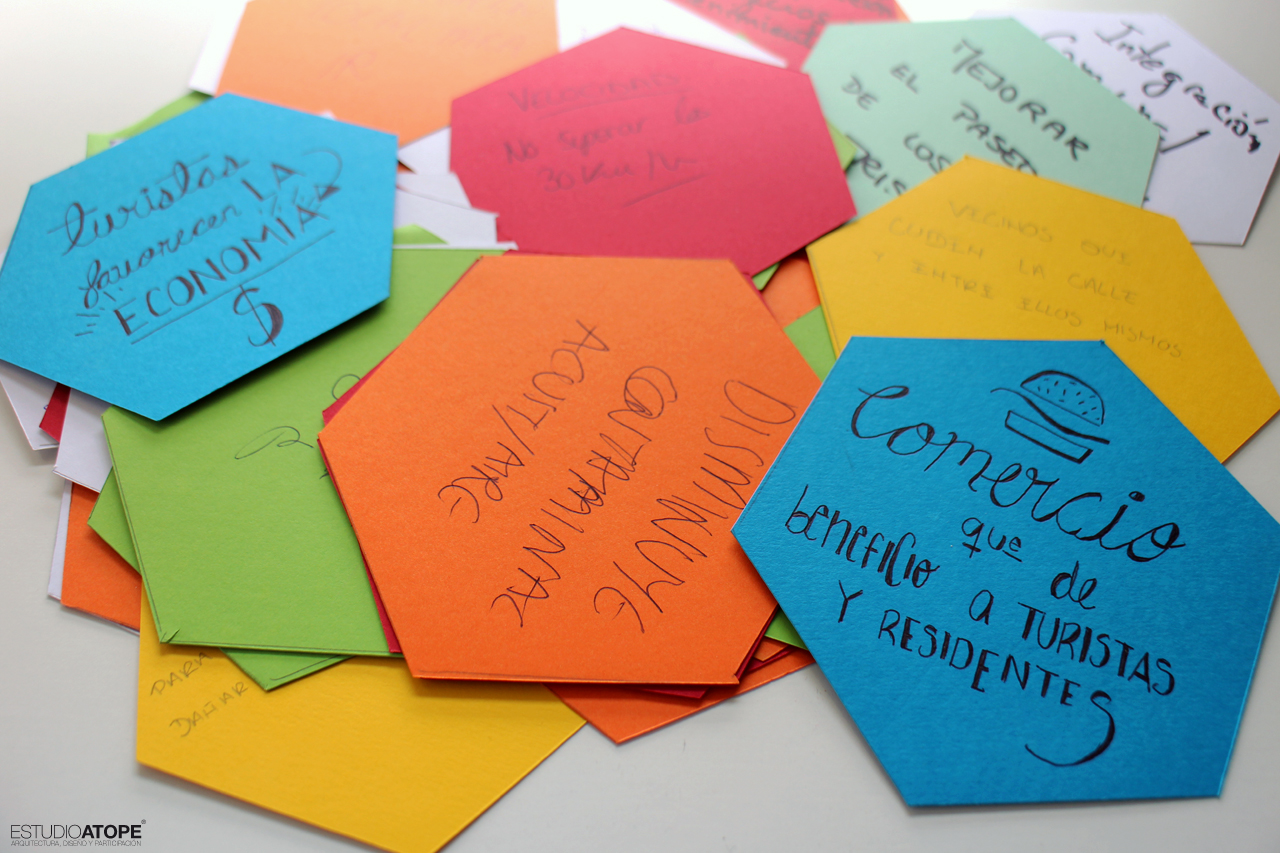 turistas
favorecen LA
ECONOMÍA
$
VELOCIDAD
No superar la
30 Km/h
MEJORAR
EL PASEO
DE LOS
Integración
VECINOS QUE
CUIDEN LA CALLE
Y ENTRE ELLOS MISMOS
DISMINUYE
CONTAMINAC
ACUST/AIRE
Comercio
que de
beneficio a TURISTAS
Y RESIDENTES
PARA
DAÑAR
ESTUDIOATOPE®
ARQUITECTURA, DISEÑO Y PARTICIPACIÓN